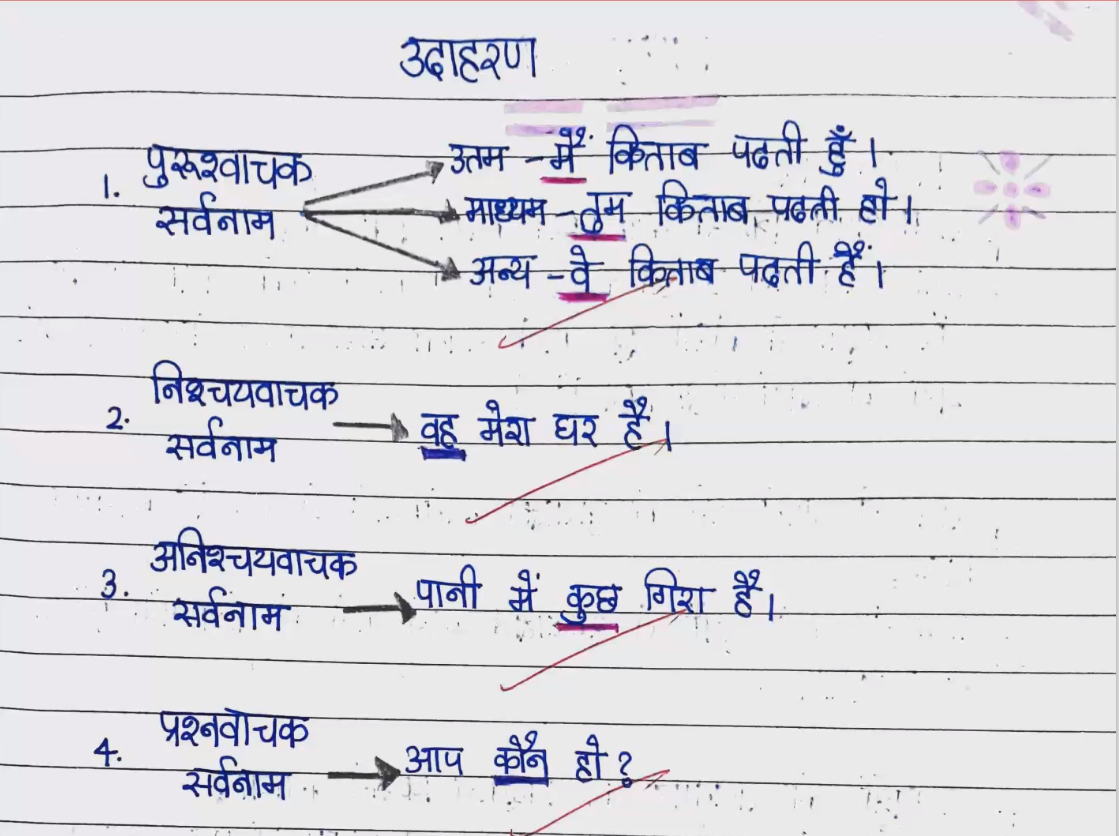 उदाहरण
1. पुरूश्वाचक सर्वनाम
उतम - मैं किताब पढती हुँ।
माध्यम - तुम किताब पढती हो।
अन्य - वे किताब पढती हैं।
2. निश्चयवाचक सर्वनाम → वह मेरा घर है।
3. अनिश्चयवाचक सर्वनाम → पानी में कुछ गिरा है।
4. प्रश्नवाचक सर्वनाम → आप कौन हो?